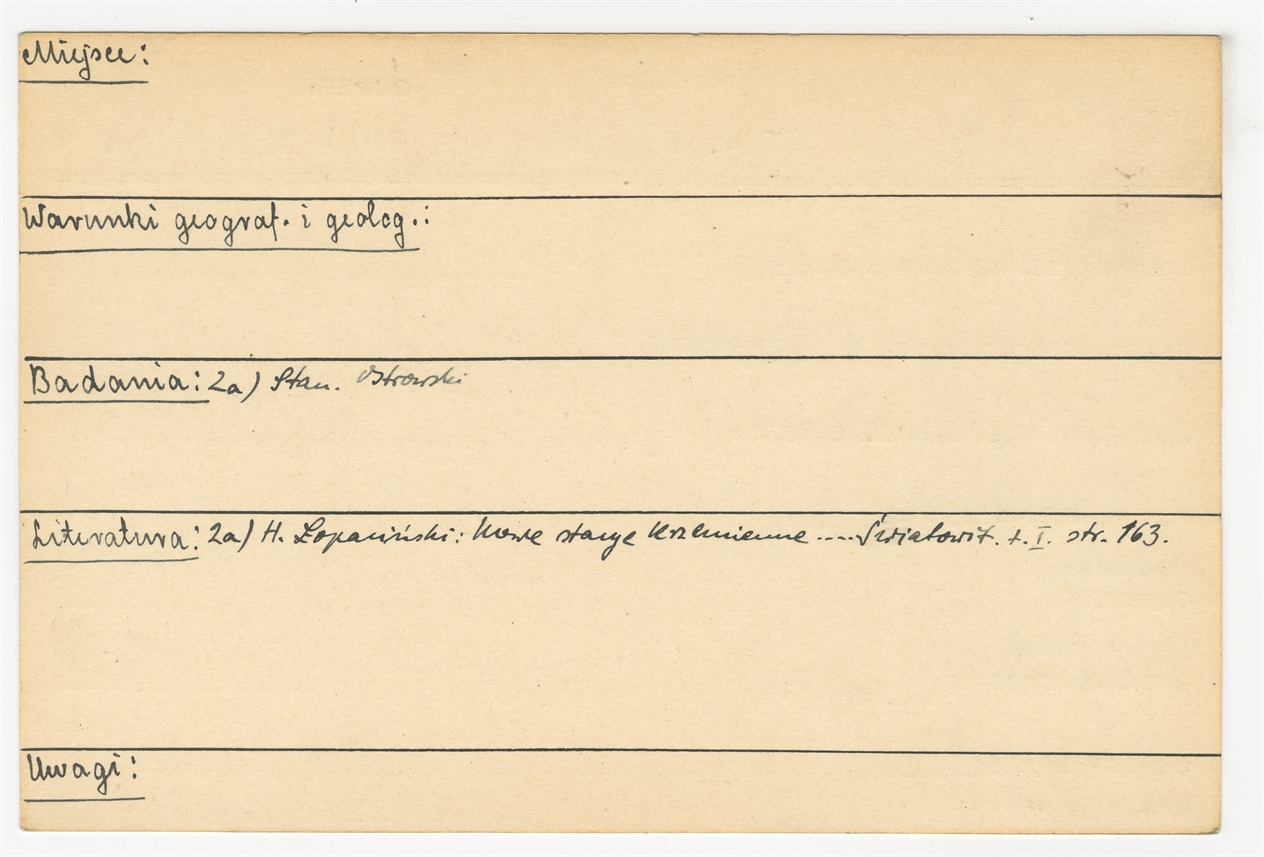 Miejsce:
Warunki geograf. i geolog.:
Badania: 2a) Stan. Ostrowski
Literatura: 2a) H. Łopaciński: Nowe stacye krzemienne .... Światowit. t. I. str. 163.
Uwagi: